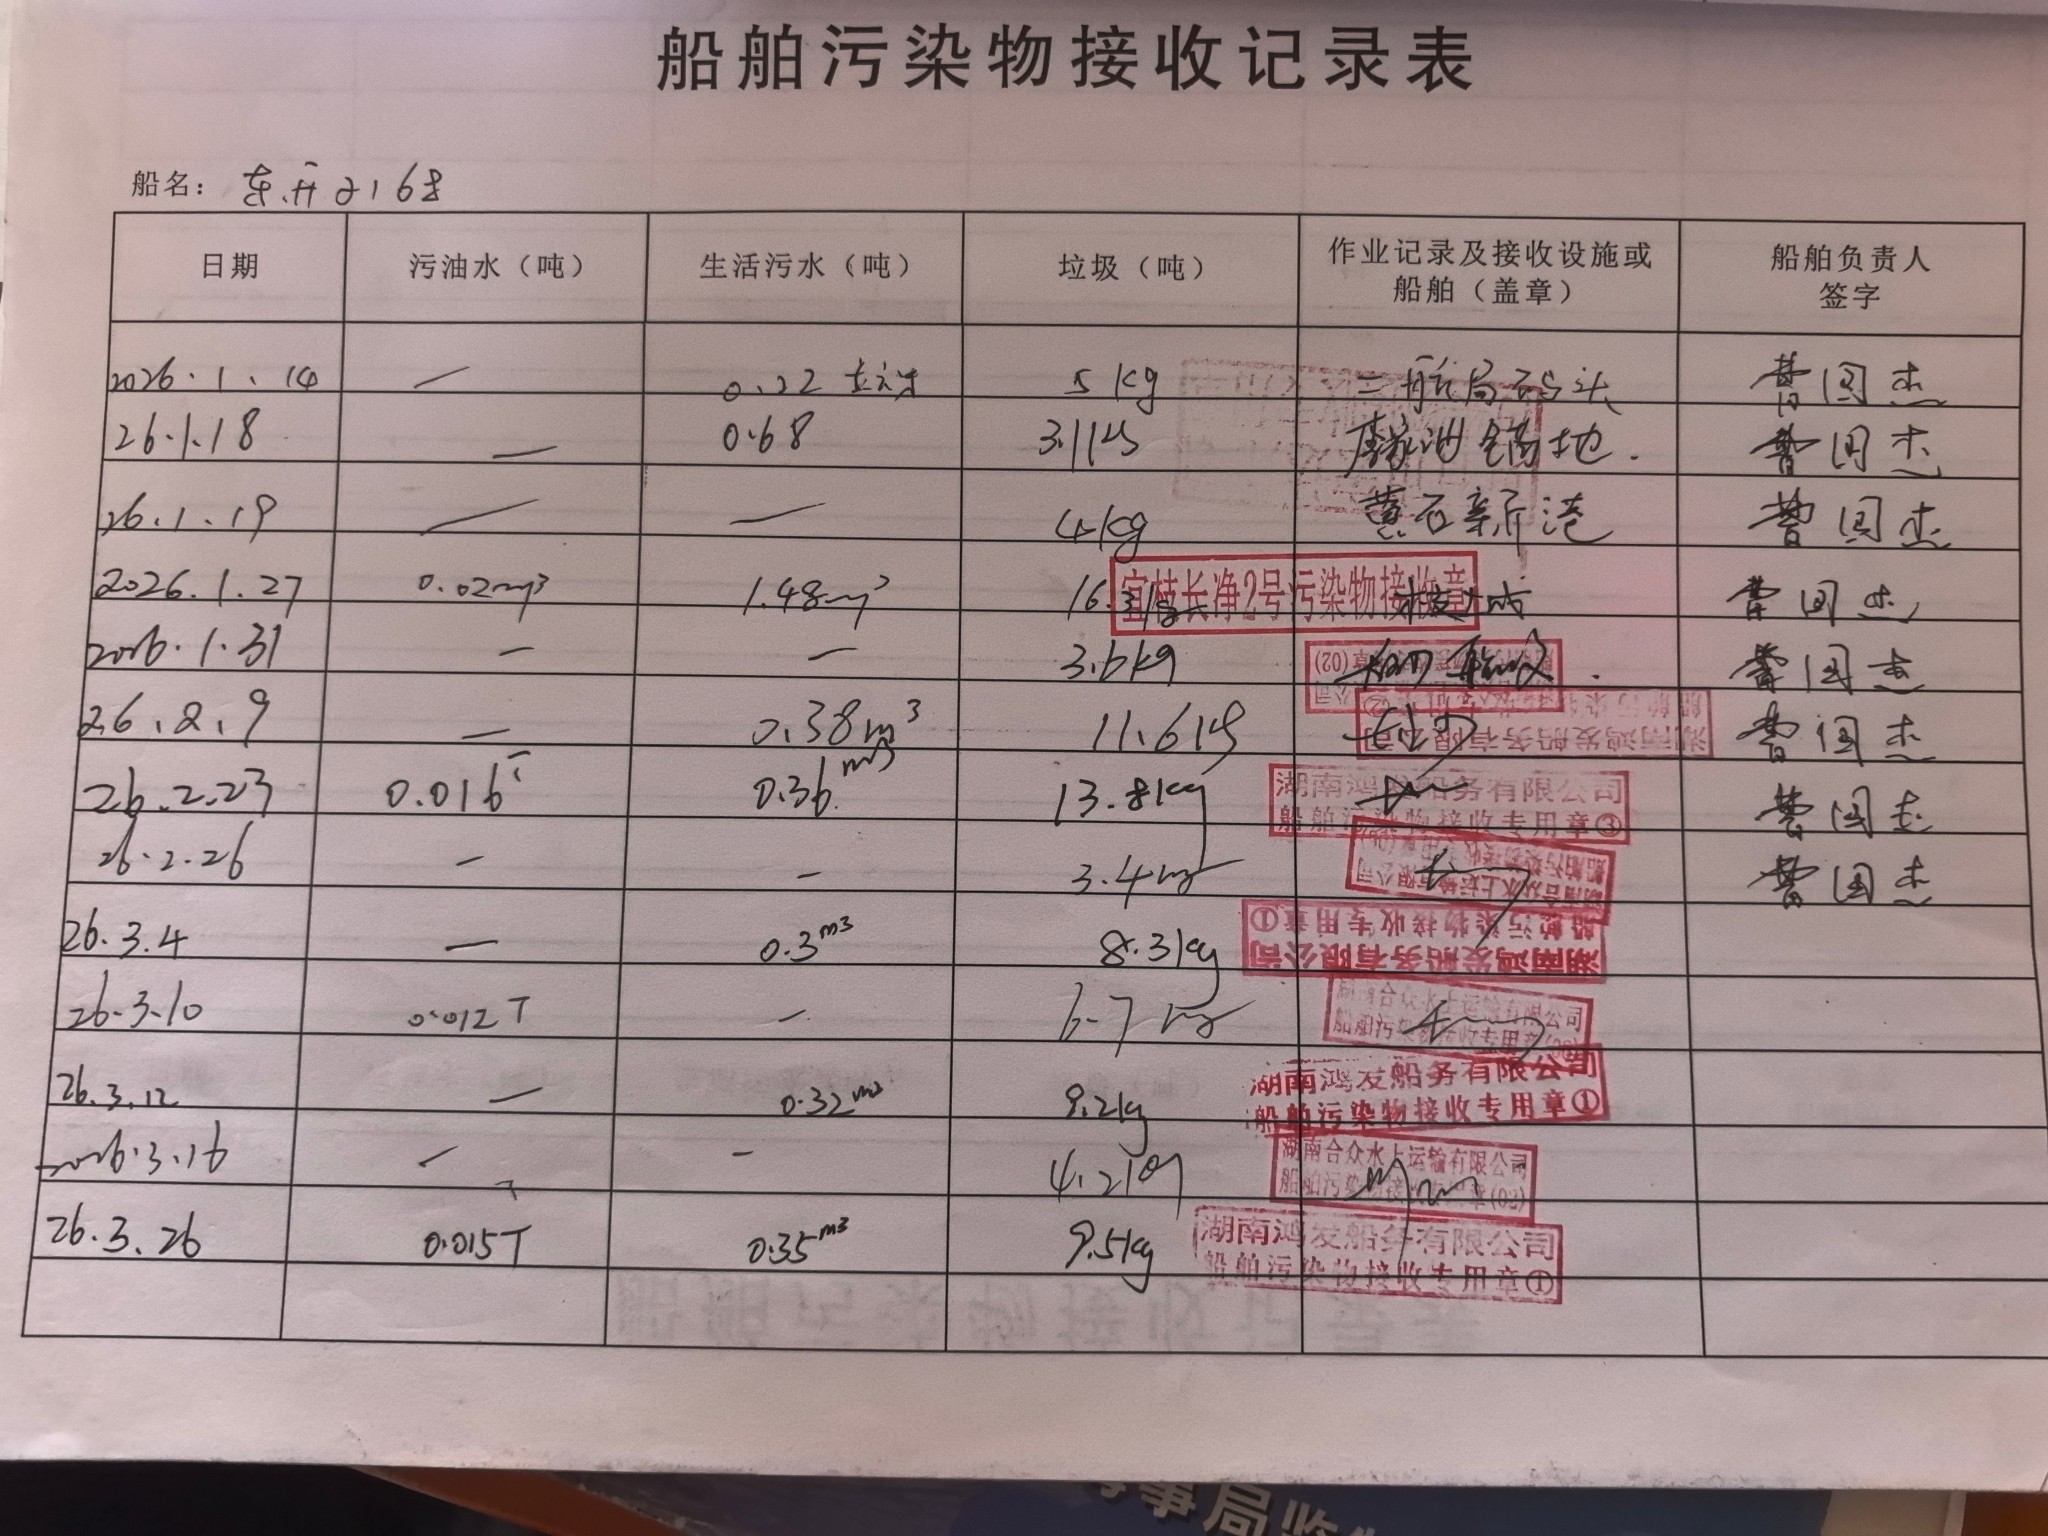 船舶污染物接收记录表
船名： 2168
日期 污油水（吨） 生活污水（吨） 垃圾（吨） 作业记录及接收设施或船舶（盖章） 船舶负责人签字
2026.1.14 — 0.22 5kg 二航局码头 曹国杰
26.1.18 — 0.68 3.1kg 曹国杰
26.1.19 — — 4kg 黄石新港 曹国杰
2026.1.27 0.02m³ 1.48m³ 16.3kg 宜枝长净2号污染物接收章 曹国杰
2026.1.31 — — 3.6kg 曹国杰
26.2.9 — 0.38m³ 11.6kg 湖南鸿发船务有限公司 船舶污染物接收专用章② 曹国杰
26.2.23 0.016T 0.36m³ 13.8kg 湖南鸿发船务有限公司 船舶污染物接收专用章③ 曹国杰
26.2.26 — — 3.4kg 曹国杰
26.3.4 — 0.3m³ 8.3kg 湖南鸿发船务有限公司 船舶污染物接收专用章①
26.3.10 0.012T — 6.7kg 湖南合众水上运输有限公司 船舶污染物接收专用章
26.3.12 — 0.32m³ 9.2kg 湖南鸿发船务有限公司 船舶污染物接收专用章①
2026.3.16 — — 4.2kg 湖南合众水上运输有限公司 船舶污染物接收专用章(02)
26.3.26 0.015T 0.35m³ 9.5kg 湖南鸿发船务有限公司 船舶污染物接收专用章①